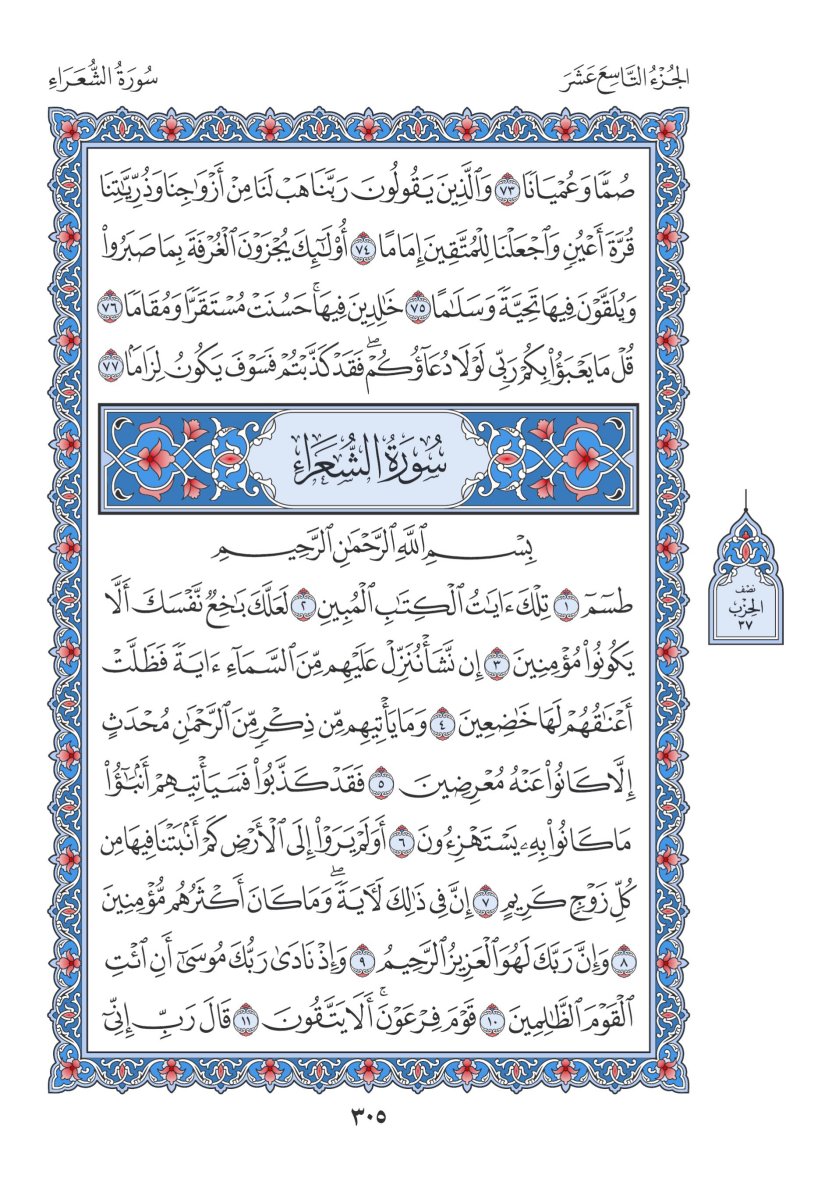 الجُزْءُ التَّاسِعَ عَشَرَ
سُورَةُ الشُّعَرَاءِ
صُمًّا وَعُمْيَانًا ٧٣ وَٱلَّذِينَ يَقُولُونَ رَبَّنَا هَبْ لَنَا مِنْ أَزْوَٰجِنَا وَذُرِّيَّٰتِنَا
قُرَّةَ أَعْيُنٍ وَٱجْعَلْنَا لِلْمُتَّقِينَ إِمَامًا ٧٤ أُوْلَٰٓئِكَ يُجْزَوْنَ ٱلْغُرْفَةَ بِمَا صَبَرُواْ
وَيُلَقَّوْنَ فِيهَا تَحِيَّةً وَسَلَٰمًا ٧٥ خَٰلِدِينَ فِيهَاۚ حَسُنَتْ مُسْتَقَرًّا وَمُقَامًا ٧٦
قُلْ مَا يَعْبَؤُاْ بِكُمْ رَبِّي لَوْلَا دُعَآؤُكُمْۖ فَقَدْ كَذَّبْتُمْ فَسَوْفَ يَكُونُ لِزَامًۢا ٧٧
سُورَةُ الشُّعَرَاءِ
بِسْمِ ٱللَّهِ ٱلرَّحْمَٰنِ ٱلرَّحِيمِ
طسٓمٓ ١ تِلْكَ ءَايَٰتُ ٱلْكِتَٰبِ ٱلْمُبِينِ ٢ لَعَلَّكَ بَٰخِعٌ نَّفْسَكَ أَلَّا
يَكُونُواْ مُؤْمِنِينَ ٣ إِن نَّشَأْ نُنَزِّلْ عَلَيْهِم مِّنَ ٱلسَّمَآءِ ءَايَةً فَظَلَّتْ
أَعْنَٰقُهُمْ لَهَا خَٰضِعِينَ ٤ وَمَا يَأْتِيهِم مِّن ذِكْرٍ مِّنَ ٱلرَّحْمَٰنِ مُحْدَثٍ
إِلَّا كَانُواْ عَنْهُ مُعْرِضِينَ ٥ فَقَدْ كَذَّبُواْ فَسَيَأْتِيهِمْ أَنۢبَٰٓؤُاْ
مَا كَانُواْ بِهِۦ يَسْتَهْزِءُونَ ٦ أَوَلَمْ يَرَوْاْ إِلَى ٱلْأَرْضِ كَمْ أَنۢبَتْنَا فِيهَا مِن
كُلِّ زَوْجٍ كَرِيمٍ ٧ إِنَّ فِي ذَٰلِكَ لَأٓيَةًۖ وَمَا كَانَ أَكْثَرُهُم مُّؤْمِنِينَ
٨ وَإِنَّ رَبَّكَ لَهُوَ ٱلْعَزِيزُ ٱلرَّحِيمُ ٩ وَإِذْ نَادَىٰ رَبُّكَ مُوسَىٰٓ أَنِ ٱئْتِ
ٱلْقَوْمَ ٱلظَّٰلِمِينَ ١٠ قَوْمَ فِرْعَوْنَۚ أَلَا يَتَّقُونَ ١١ قَالَ رَبِّ إِنِّيٓ
نصْف
الحِزْبِ
٣٧
٣٠٥